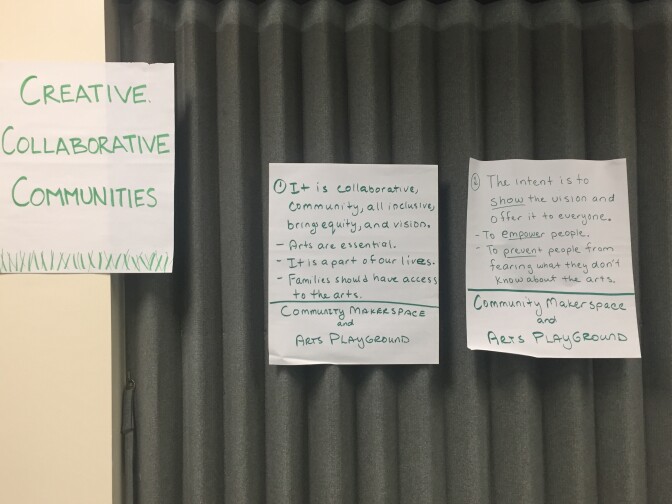 CREATIVE.
COLLABORATIVE
COMMUNITIES
① It is collaborative,
community, all inclusive,
brings equity, and vision.
- Arts are essential.
- It is a part of our lives.
- Families should have access
to the arts.
COMMUNITY MAKERSPACE
and
ARTS PLAYGROUND
② The intent is to
show the vision and
offer it to everyone.
- To empower people.
- To prevent people from
fearing what they don't
know about the arts.
COMMUNITY MAKERSPACE
and
ARTS PLAYGROUND